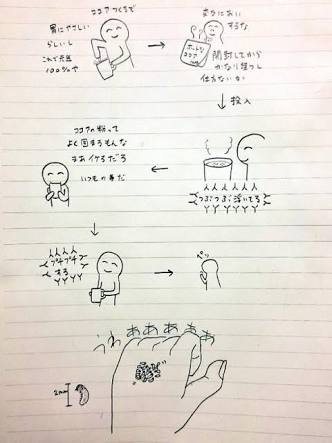 ココアつくるで
胃にやさしい
らしいし
これで元気
100%や
変なにおい
するな
ホットリ
ココア
開封してから
かなり経つし
仕方ないか
投入
つぶつぶ浮いてる
ココアの粉って
よく固まるもんな
まあイケるだろ
いつもの事だ
プチプチ
する
うわぁああああ
2mm